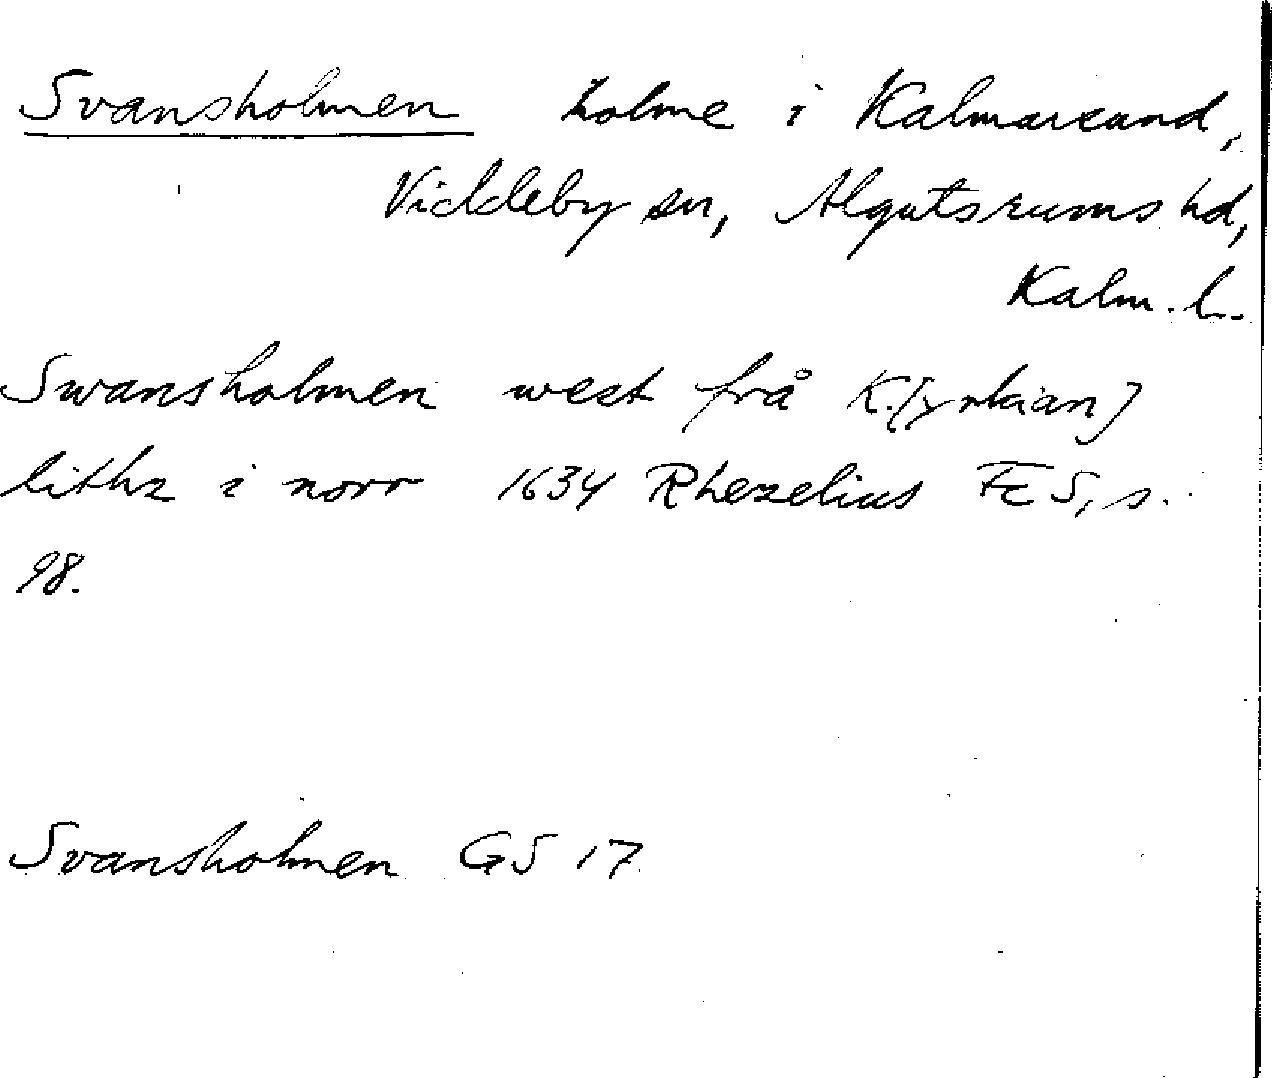 Svansholmen holme i Kalmarsund,
Vickleby sn, Algutsrums hd,
Kalm. l.
Swansholmen west frå K.[yrkian]
lithz i norr 1634 Rhezelius FES, s.
98.
Svansholmen GS 17